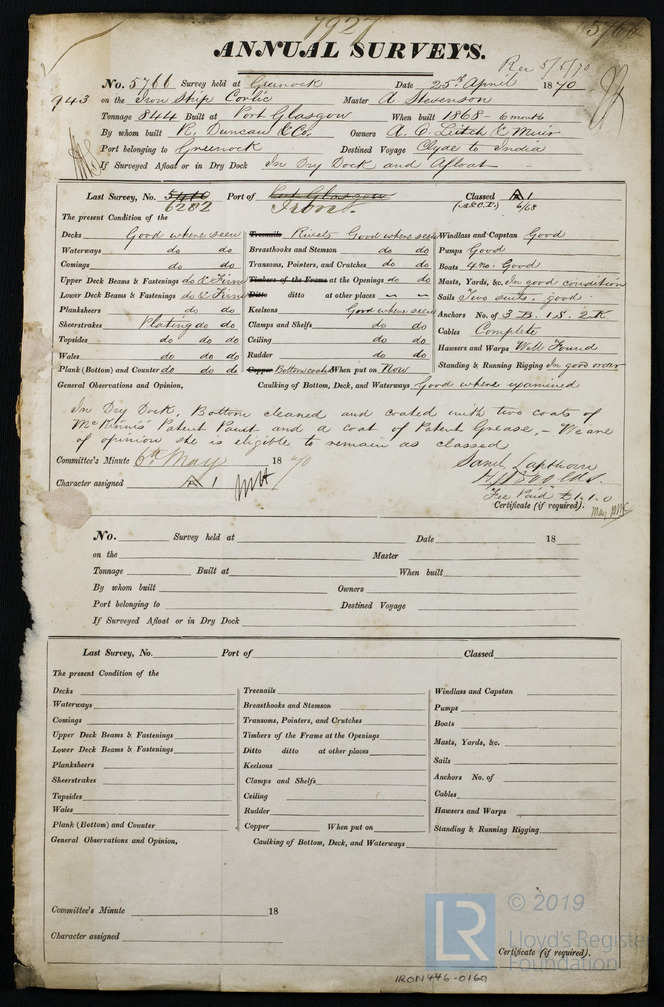 7927
5766
ANNUAL SURVEYS.
Rec 5/5/70
No. 5766 Survey held at Greenock Date 25th April 1870
943 on the Iron Ship Corlic Master A Stevenson
Tonnage 844 Built at Port Glasgow When built 1868 - 6 month
By whom built R. Duncan & Co. Owners A. C. Leitch & Muir
Port belonging to Greenock Destined Voyage Clyde to India
If Surveyed Afloat or in Dry Dock In Dry Dock and Afloat
Last Survey, No. 5410 Port of Port Glasgow Classed A 1
6282 Iron. 6/68
The present Condition of the
Decks Good where seen
Waterways do do
Comings do do
Upper Deck Beams & Fastenings do & Firm
Lower Deck Beams & Fastenings do & Firm
Planksheers do do
Sheerstrakes Plating do do
Topsides do do do
Wales do do do
Plank (Bottom) and Counter do do do
Treenails Rivets Good where seen
Breasthooks and Stemson do do
Transoms, Pointers, and Crutches do do
Timbers of the Frame at the Openings do do
Ditto ditto at other places
Keelsons Good where seen
Clamps and Shelfs do do
Ceiling do do
Rudder do do
Copper Bottom coated When put on Now
Windlass and Capstan Good
Pumps Good
Boats 4 no. Good
Masts, Yards, &c. In good condition
Sails Two suits, good
Anchors No. of 3 B. 1 S. 2 K
Cables Complete
Hawsers and Warps Well Found
Standing & Running Rigging In good order
General Observations and Opinion, Caulking of Bottom, Deck, and Waterways Good where examined
In Dry Dock, Bottom cleaned and coated with two coats of
McKinnis' Patent Paint and a coat of Patent Grease, - We are
of opinion she is eligible to remain as classed
Committee's Minute 6th May 1870
Character assigned A 1
Saml Lapthorn
Fee Paid £1.1.0
Certificate (if required).
No. Survey held at Date 18
on the Master
Tonnage Built at When built
By whom built Owners
Port belonging to Destined Voyage
If Surveyed Afloat or in Dry Dock
Last Survey, No. Port of Classed
The present Condition of the
Decks
Waterways
Comings
Upper Deck Beams & Fastenings
Lower Deck Beams & Fastenings
Planksheers
Sheerstrakes
Topsides
Wales
Plank (Bottom) and Counter
Treenails
Breasthooks and Stemson
Transoms, Pointers, and Crutches
Timbers of the Frame at the Openings
Ditto ditto at other places
Keelsons
Clamps and Shelfs
Ceiling
Rudder
Copper When put on
Windlass and Capstan
Pumps
Boats
Masts, Yards, &c.
Sails
Anchors No. of
Cables
Hawsers and Warps
Standing & Running Rigging
General Observations and Opinion, Caulking of Bottom, Deck, and Waterways
Committee's Minute 18
Character assigned
Certificate (if required).
LR © 2019
Lloyd's Register
Foundation
IRON446-0160